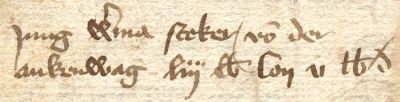 jung w̄ina steker vō der
ankenwag liij lb lon v lb d